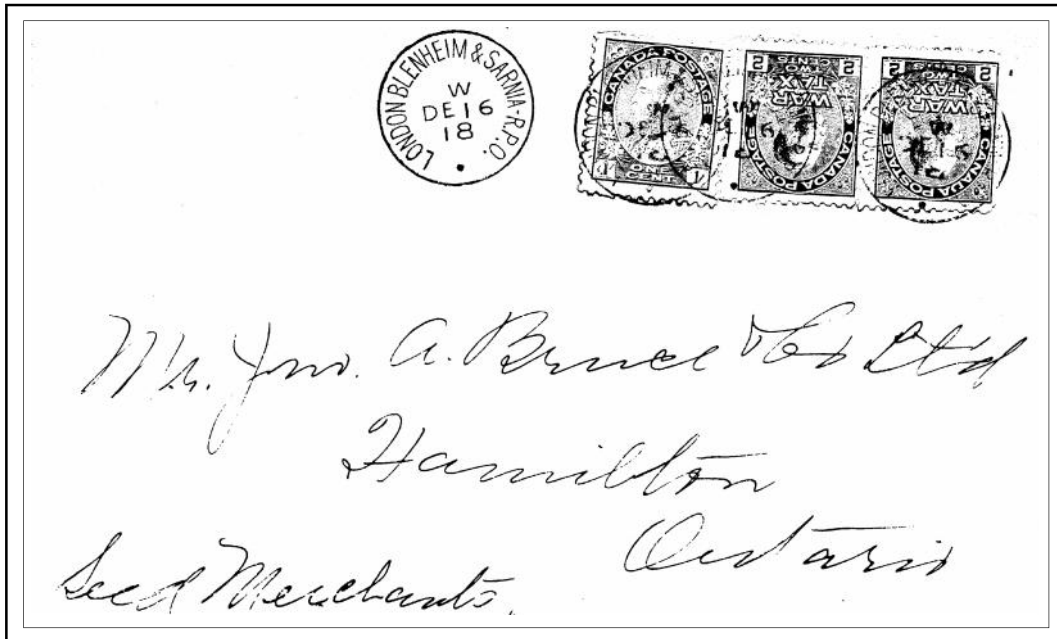 LONDON BLENHEIM & SARNIA-R.P.O.
W
DE 16
18
CANADA POSTAGE
1 1
ONE CENTS
CANADA POSTAGE
WAR TAX
2 TWO CENTS 2
CANADA POSTAGE
WAR TAX
2 TWO CENTS 2
Mr. Jno. A. Bruce & Co Ltd
Hamilton
Ontario
Seed Merchants.